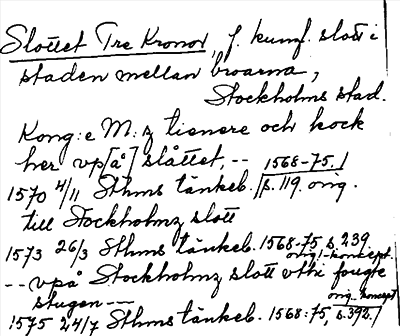 Slottet Tre Kronor, f. kungl. slott i
staden mellan broarna,
Stockholms stad.
Kong:e M:z tienere och kock
her vp[å] slåttet, --
1570 4/11 Sthms tänkeb. 1568-75. s. 119. orig.
till Stockholmz slott
1573 26/3 Sthms tänkeb. 1568-75 s. 239.
orig.-koncept.
-- vpå Stockholmz slott vthi fougte
stugen --
1575 24/7 Sthms tänkeb. 1568-75, s. 392.
orig. koncept